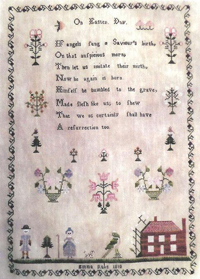 On Easter Day.
If angels sung a Saviour's birth,
On that auspicious morn,
Then let us imitate their mirth,
Now he again is born.
Himself he humbled to the grave;
Made flesh like us; to shew
That we as certainly shall have
A resurrection too.